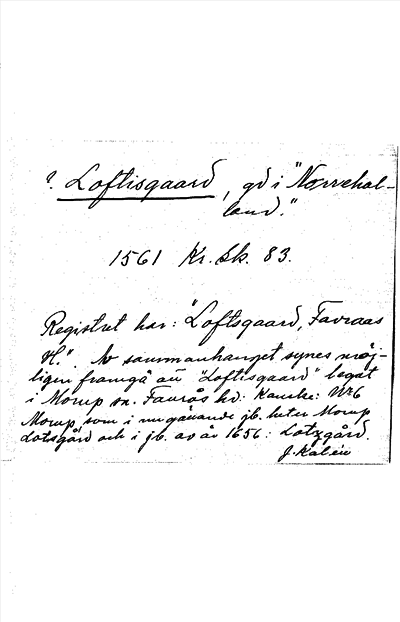 ? Loftisgaard, gd i "Nørrehal-
land."
1561 Kr. Sk. 83.
Registret har: "Loftsgaard, Favraas
H.". Av sammanhanget synes möj-
ligen framgå att "Loftisgaard" legat
i Morup sn. Faurås hd: Kanske: No 6
Morup som i nugällande jb. heter Morup
Lotsgård och i jb. av år 1656: Lotzgård.
J. Kalén